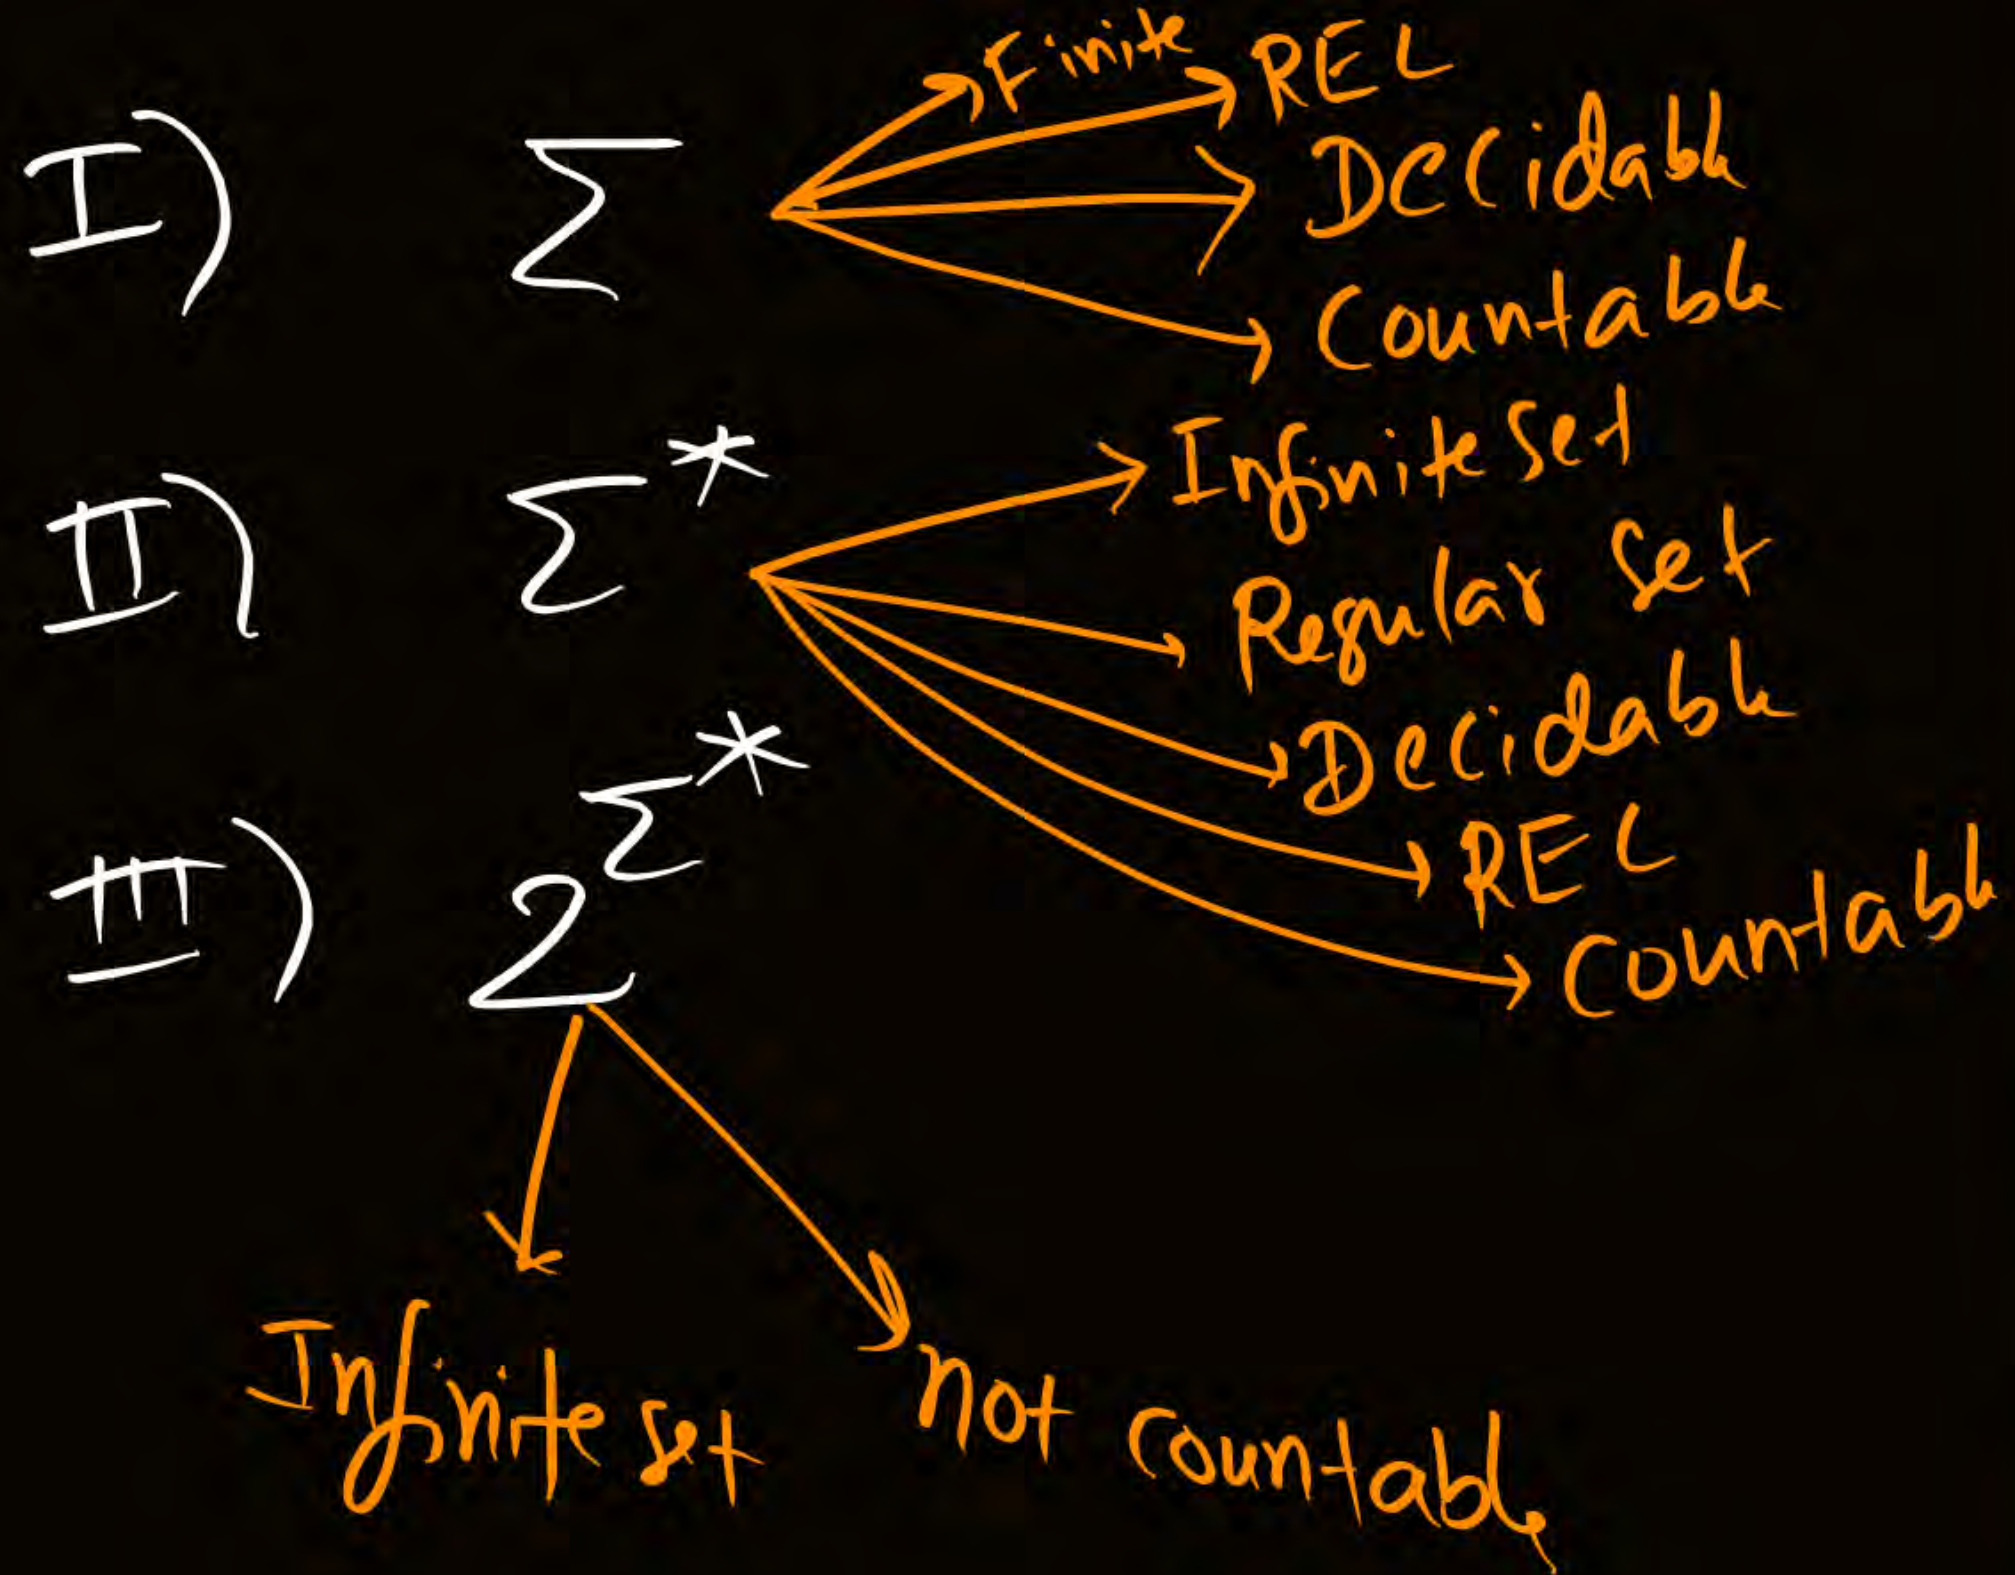 I) Σ Finite REL
Decidable
Countable
II) Σ* Infinite set
Regular set
Decidable
REL
Countable
III) 2^Σ*
Infinite set not countable